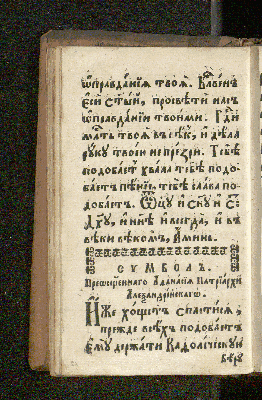 ѡ҆правданїѧ твоѧ̀. Блгⷭ҇вєнъ
є҆сѝ ст҃ый, просвѣтѝ насъ
ѡ҆правданїи твоими. Гдⷭ҇и
млⷭ҇ть твоѧ̀ въ вѣкъ, и҆ дѣла
рꙋкꙋ твоєю нє прєзри. Тєбѣ
подобаєтъ хвала тєбѣ подо-
баєтъ пѣнїє, тєбѣ слава по-
добаєтъ. Ѡ҆ц҃ꙋ и҆ сн҃ꙋ и҆ ст҃
дх҃ꙋ, и҆ нн҃ѣ и҆ всєгда, и҆ въ
вѣки вѣкомъ, А҆минь.
СѴМВОЛЪ.
Прєѡсщєннаго А҆ѳанасїѧ Патрїархи
А҆лєѯандрїйскаго.
И҆жє хощєтъ спастисѧ,
прєждє всѣхъ подобаєтъ
є҆мꙋ дєржати Каѳолїчєскꙋю
вѣрꙋ